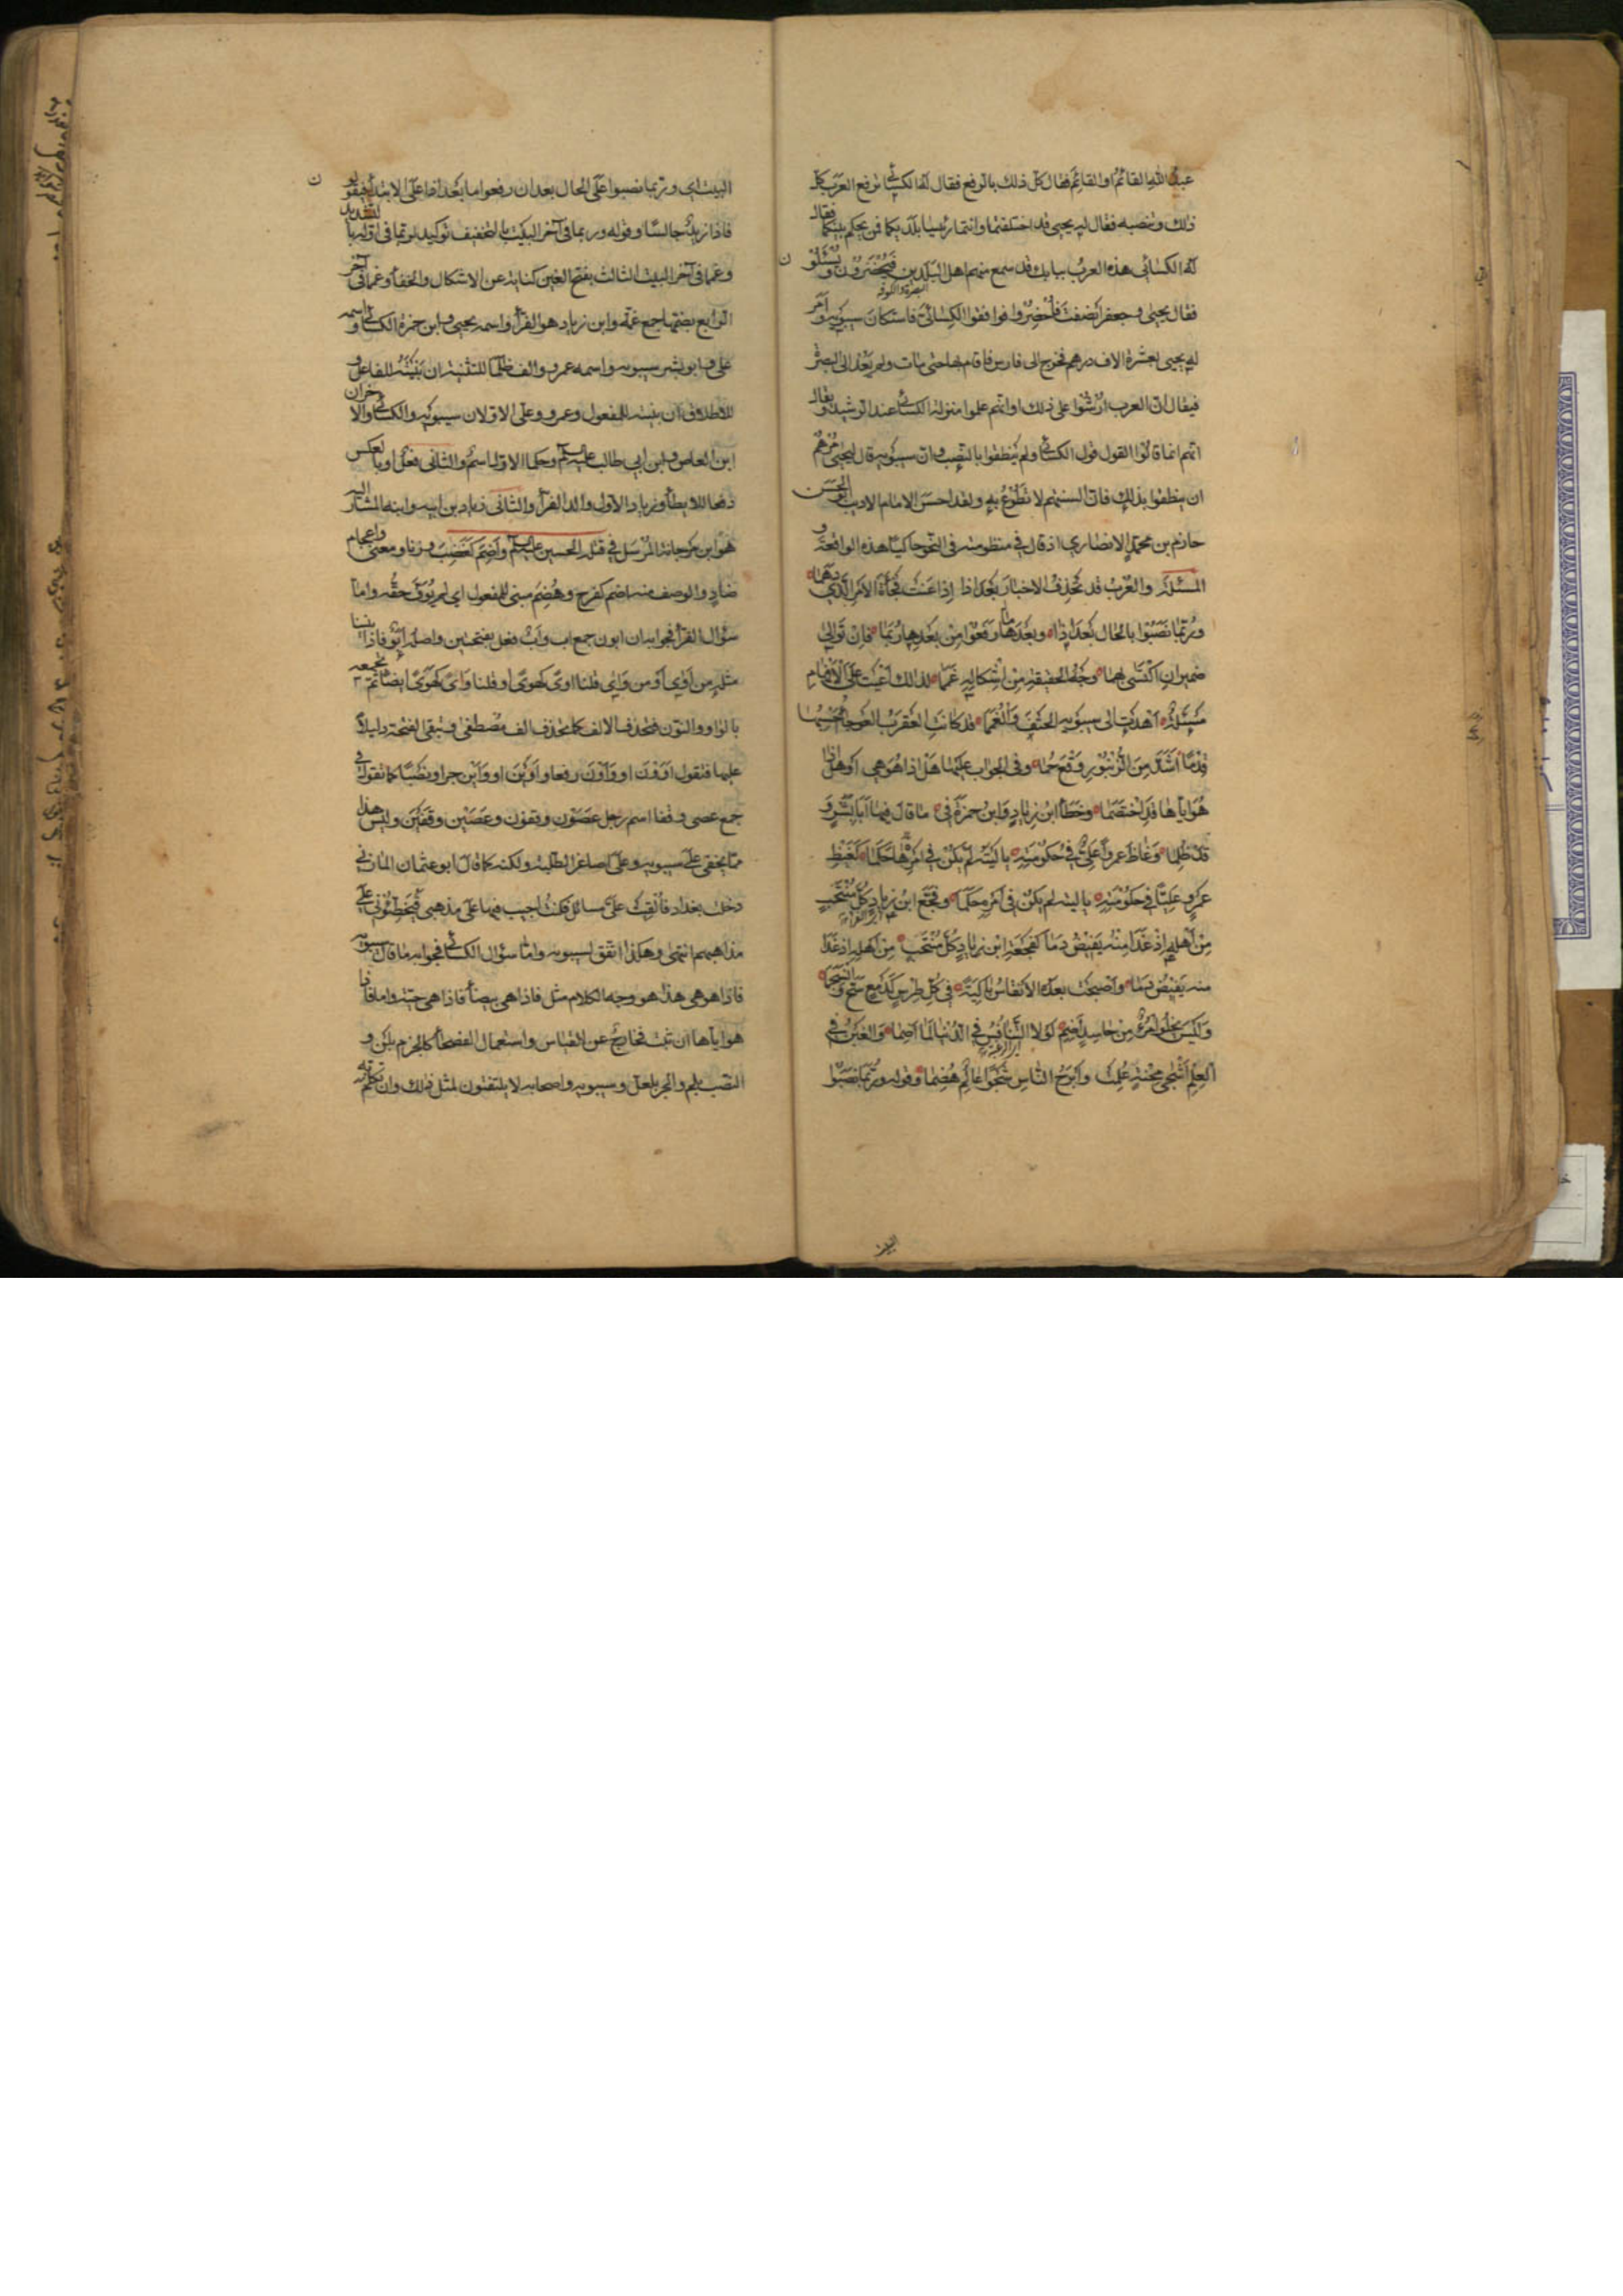 عبدُ اللهِ القائمُ او القائمَ فقال كل ذلك بالرفع فقال له الكسائي ترفع العرب كل
ذلك وتنصبه فقال له يحيى قد اختلفتما وانتما رئيسا بلديكما فمن يحكم بينكما فقال
له الكسائي هذه العرب ببابك قد سمع منهم اهل البلدين فيُحْضَرون ويُسْئلون
البصرة والكوفة
فقال يحيى وجعفر انصفت فأُحْضِرُوا فوافقوا الكسائي فاستكان سيبويه وامر
له يحيى بعشرة الاف درهم فخرج الى فارس فاقام بها حتى مات ولم يَعُدْ الى البصرة
فيقال ان العرب اُرْشُوا على ذلك او انهم علموا منزلة الكسائي عند الرشيد ويقال
انهم انما قالوا القول قول الكسائي ولم ينطقوا بالنصب وان سيبويه قال ليحيى مُرْهم
ان ينطقوا بذلك فان السنتهم لا تَطَوَّعُ به ولقد احسن الامام الاديب ابو الحسن
حازم بن محمد الانصاري اذ قال في منظومته في النحو حاكيا هذه الواقعة و
المسئلة والعرب قد تحذف الاخبار بعد اذا اِذا عَنَتْ فُجْأَةَ الامر الذي دَهَما
وربّما نصبوا بالحال بعد اِذا وبعدها رفعوا من بعدها رُبَما فان توالى
ضميران اكتسى بهما وجهُ الحقيقة من اِشكاله غَمَما لذالك اَعْيَتْ على الافهام
مسئلةٌ اهدت الى سيبويه الحتفَ والغُمَما قد كانت العقربُ العوجاءُ حسبها
قِدْمًا اَشَدَّ من الزُّنْبُورِ وقعَ حُما وفي الجواب عليها هل اذا هو هي او هل اذا
هو اياها قد اختصما وخَطَّأ ابنُ زيادٍ وابنُ حمزةَ في ما قال فيها ابا بِشْرٍ و
قد ظلما وغاظ عمرًوا عليٌّ في حكومته يا ليته لم يكن في امرها حَكَما كغيظ
عمرٍو عليًّا في حكومته يا ليته لم يكن في امرٍ حَكَما وفجّع ابنُ زيادٍ كلَّ منتحبٍ
من اهله اذ غدا منه يَفِيضُ دَما كفَجْعَةِ ابنِ زيادٍ كلَّ منتحب من اهله اذ غدا
منه يفيض دما واصبحت بعده الانفاسُ باكيةً في كل طِرسٍ كدمعٍ سَحَّ وانسجما
وليس يخلو امرُؤٌ من حاسدٍ اَضِمٍ لولا التنافُسُ في الدنيا لما اُضِما والغَبْنُ في
العلم اشجى محنةٍ عُلِمَتْ وابرحُ الناس شجوًا عالِمٌ هُضِما وقوله وربّما نصبوا
البيت
البيت اي وربما نصبوا على الحال بعد ان رفعوا ما بعد اذا على الابتداء فيقولون
فاذا زيدٌ جالسًا وقوله وربما في آخر البيت بالتخفيف توكيد لربّما في اوله بالتشديد
وغمما في آخر البيت الثالث بفتح الغين كناية عن الاشكال والخفاء وغمما في آخر
الرابع بضمها جمع غمّة وابن زياد هو الفراء واسمه يحيى وابن حمزة الكسائي واسمه
علي وابو بشر سيبويه واسمه عمرو والف ظلما للتثنية ان بَنَيْتَهُ للفاعل و
للاطلاق ان بنيته للمفعول وعمرو وعلى الاولان سيبويه والكسائي والاخران
ابن العاص وابن ابي طالب عليه السلام وحكما الاول اسمٌ والثاني فعلٌ او بالعكس
دفعا للايطاء وزياد الاول والد الفراء والثاني زياد بن ابيه وابنه المشار اليه
هو ابن مرجانة المرسل في قتلة الحسين عليه السلام واَضِمَ كغَضِبَ وزنا ومعنى واعجام
ضادٍ والوصف منه اضم كفرح وهُضِمَ مبنى للمفعول اي لم يُوَفَّ حقُّه واما
سؤال الفراء فجوابه ان ابون جمع اب واَبٌ فعل بفتحتين واصله اَبَوٌ فاذا بنينا
مثله من اَوْي او من وَاْي قلنا اوىً كهوىً او قلنا وَاىً كهوىً ايضا ثم نجمعه
بالواو والنون فتحذف الالف كما تحذف الف مصطفى وتبقى الفتحة دليلا
عليها فنقول اَوَوْنَ او وَاَوْنَ رفعا واَوَيْنَ او وَاَيْنَ جرا ونصبًا كما تقول في
جمع عصى وقفا اسم رجل عَصَوْن وقفون وعَصَيْن وقَفَيْن وليس هذا
ممّا يخفى على سيبويه وعلى اصاغر الطلبة ولكنه كما قال ابو عثمان المازني
دخلتُ بغداد فاُلْقِيَتْ عليَّ مسائل فكنتُ اجيب فيها على مذهبي فيُخَطِّئُونني على
مذاهبهم انتهى وهكذا اتفق لسيبويه واما سؤال الكسائي فجوابه ما قال سيبويه
فاذا هو هي هذا هو وجه الكلام مثل فاذا هي بيضاء فاذا هي حيّة واما فاذا
هو اياها ان ثبت فخارجٌ عن القياس واستعمال الفصحاء كالجزم بلن و
النصب بلم والجر بلعل وسيبويه واصحابه لا يلتفتون لمثل ذلك وان تكلم به